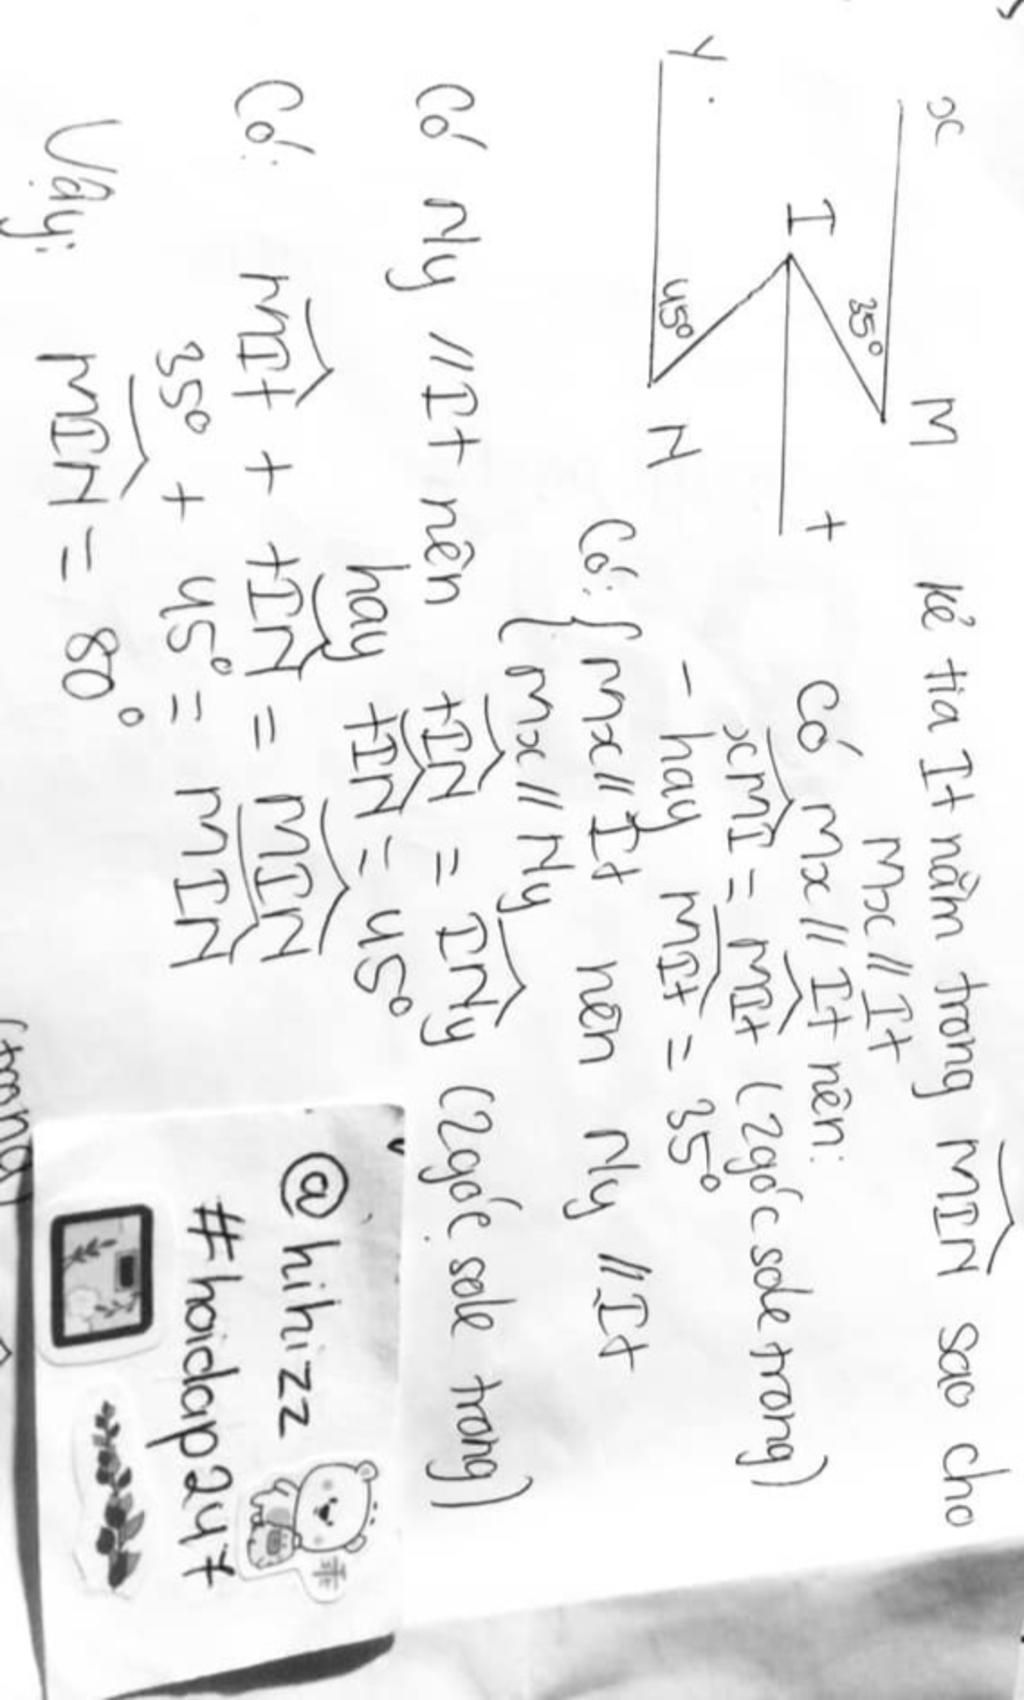 x M
I t
35°
45°
y N
kẻ tia It nằm trong MIN sao cho
Mx // It
Có Mx // It nên:
xMI = MIt (2 góc sole trong)
- hay MIt = 35°
Có: { Mx // It nên Ny // It
{ Mx // Ny
Có Ny // It nên tIN = INy (2 góc sole trong)
hay tIN = 45°
Có: MIt + tIN = MIN
35° + 45° = MIN
Vậy: MIN = 80°
@hihizz
#hoidap247
(trong)